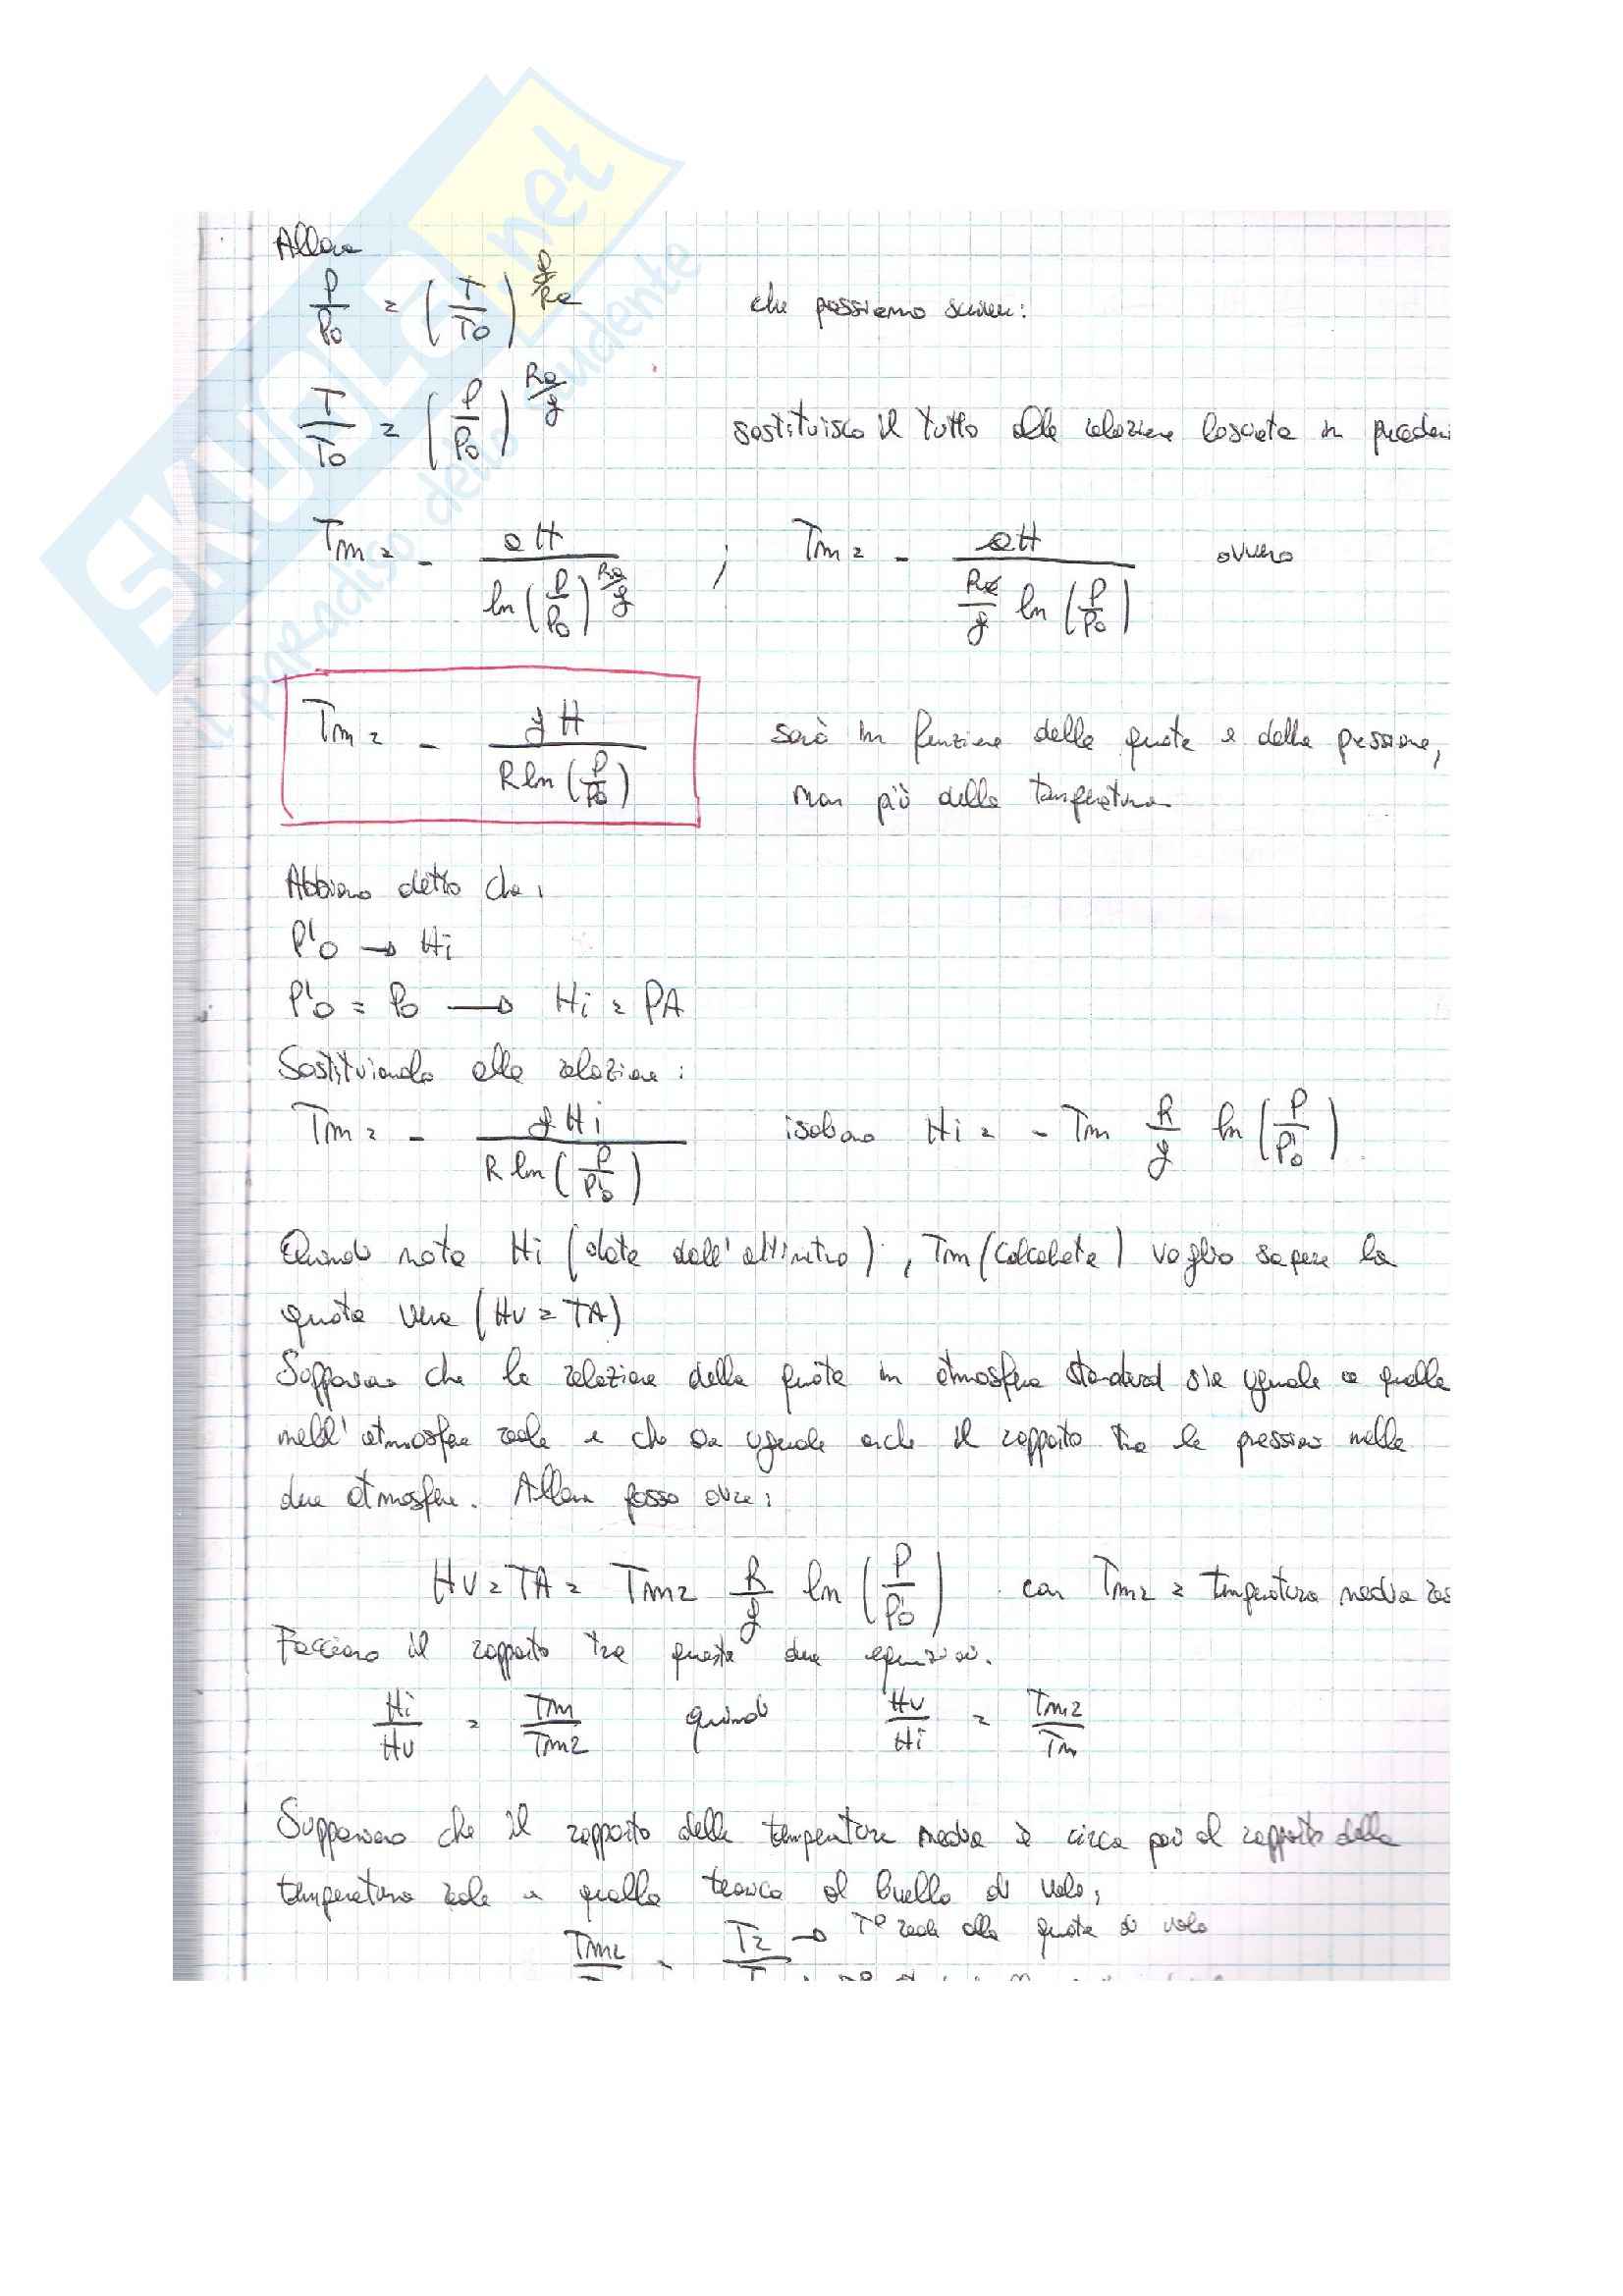 SKUOLA.net
il paradiso dello studente
Allora
P/P0 = (T/T0)^(g/Ra) che possiamo scrivere:
T/T0 = (P/P0)^(Ra/g) sostituisco il tutto alla relazione lasciata in preceden
Tm = - aH / ln(P/P0)^(Ra/g) ; Tm = - aH / (Ra/g ln(P/P0)) ovvero
Tm = - gH / (R ln(P/P0)) sarà in funzione della quota e della pressione,
non più della temperatura
Abbiamo detto che:
P'0 → Hi
P'0 = P0 → Hi = PA
Sostituendo alla relazione:
Tm = - gHi / (R ln(P/P'0)) isolano Hi = - Tm R/g ln(P/P'0)
Quindi nota Hi (data dall'altimetro), Tm (calcolata) voglio sapere la
quota vera (Hv = TA)
Supponiamo che la relazione della quota in atmosfera standard sia uguale a quella
nell'atmosfera reale e che sia uguale anche il rapporto tra le pressioni nelle
due atmosfere. Allora posso avere:
Hv = TA = Tmr R/g ln(P/P'0) con Tmr = temperatura media re
Facciamo il rapporto tra queste due equazioni.
Hi/Hv = Tm/Tmr quindi Hv/Hi = Tmr/Tm
Supponiamo che il rapporto delle temperature media è circa pari al rapporto della
temperatura reale e quella teorica al livello di volo:
Tmr Tr → T° reale alla quota di volo